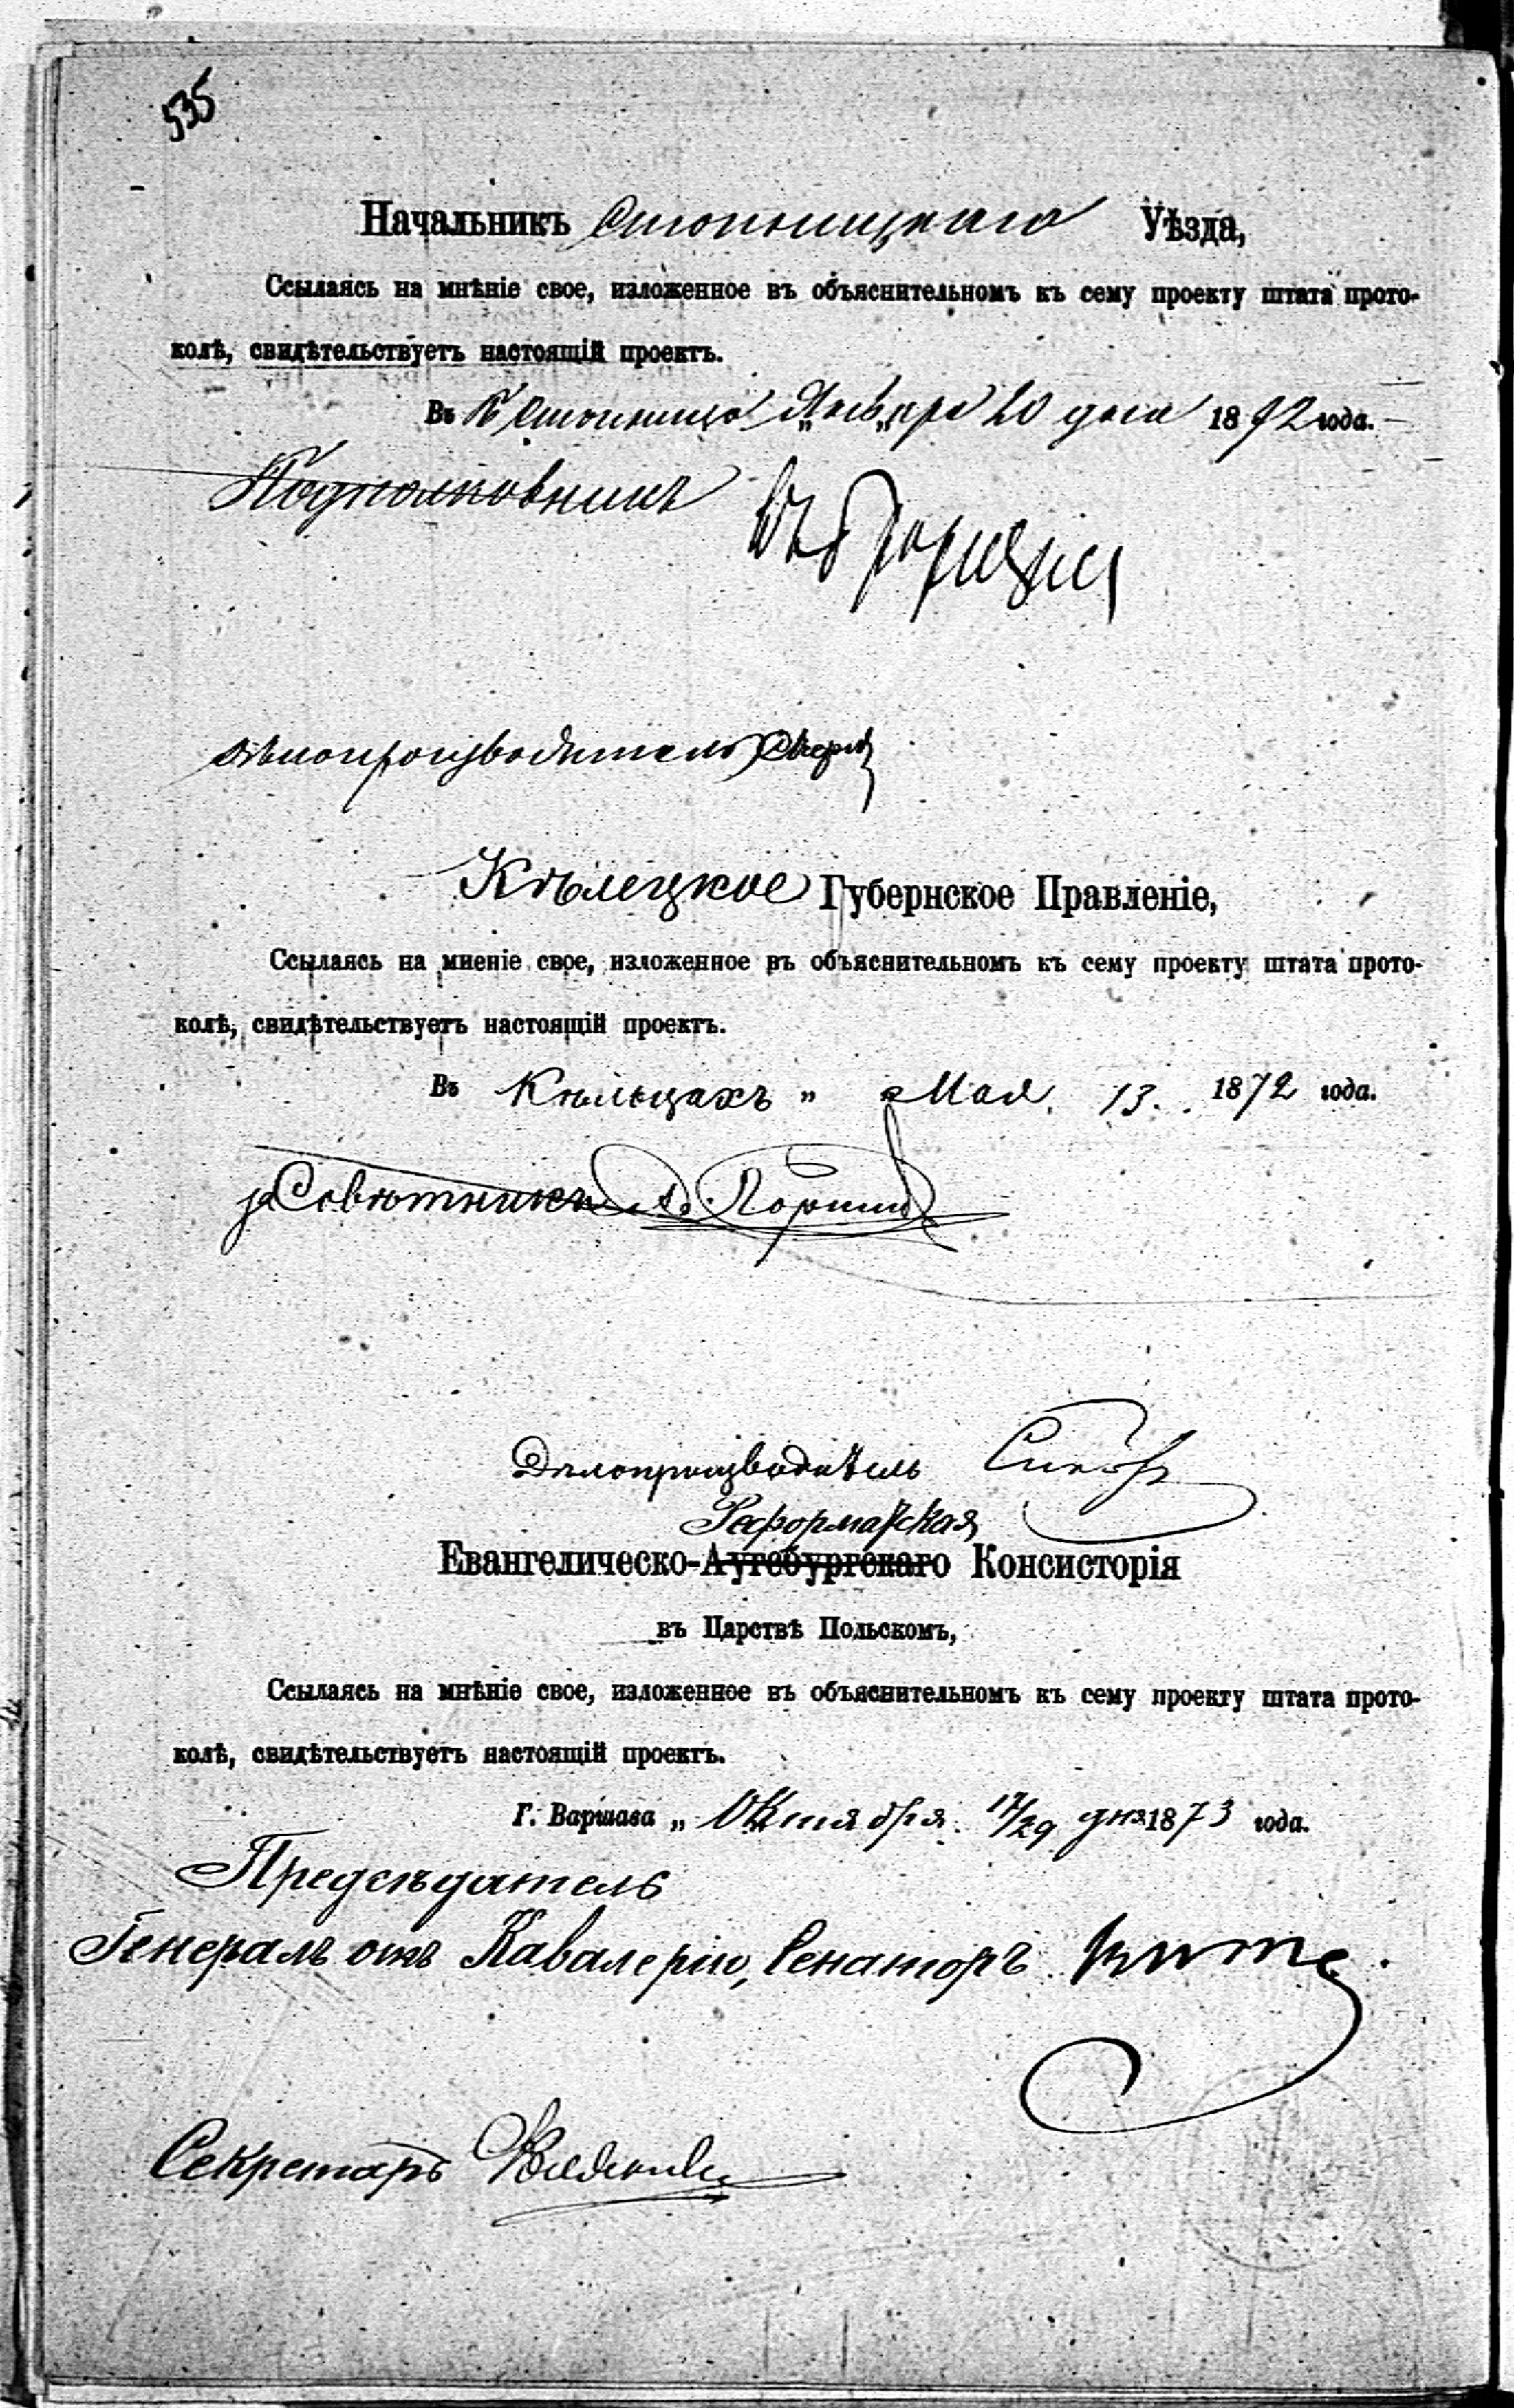 535
Начальникъ Стопницкаго Уѣзда,
Ссылаясь на мнѣніе свое, изложенное въ объяснительномъ къ сему проекту штата прото-
колѣ, свидѣтельствуетъ настоящій проектъ.
Въ Г. Стопница „Янв„аря 20 дня 1872 года.
Подполковникъ
Дѣлопроизводитель
Кѣлецкое Губернское Правленіе,
Ссылаясь на мненіе свое, изложенное въ объяснительномъ къ сему проекту штата прото-
колѣ, свидѣтельствуетъ настоящій проектъ.
Въ Кѣльцахъ „ Мая 13. 1872 года.
за Совѣтника
Дѣлопроизводитель
Реформатская
Евангелическо-Аугсбургскаго Консисторія
въ Царствѣ Польскомъ,
Ссылаясь на мнѣніе свое, изложенное въ объяснительномъ къ сему проекту штата прото-
колѣ, свидѣтельствуетъ настоящій проектъ.
Г. Варшава „ Октября 17/29 дня 1873 года.
Предсѣдатель
Генералъ отъ Кавалеріи, Сенаторъ Витте
Секретарь